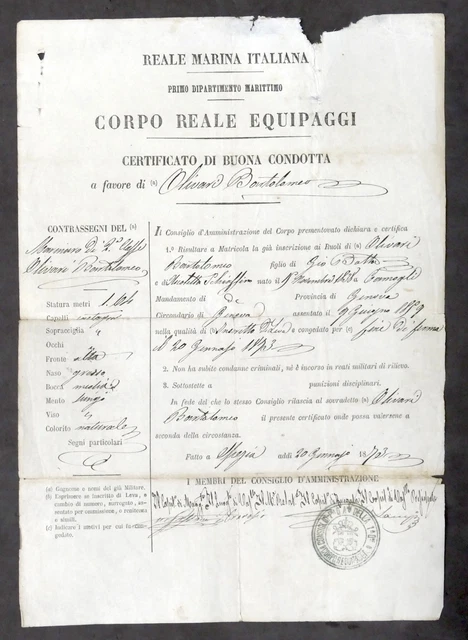 REALE MARINA ITALIANA
PRIMO DIPARTIMENTO MARITTIMO
CORPO REALE EQUIPAGGI
CERTIFICATO DI BUONA CONDOTTA
a favore di (a) Olivari Bortolomeo
CONTRASSEGNI DEL (a)
Marinaro Di 2.a Classe
Olivari Bortolomeo
Statura metri 1.
Capelli
Sopracciglia "
Occhi
Fronte alta
Naso grosso
Bocca media
Mento lungo
Viso "
Colorito naturale
Segni particolari
(a) Cognome e nome del già Militare.
(b) Esprimere se inscritto di Leva, o
cambio di numero, surrogato, arruolato per ammissione, e residenza
e simili.
(c) Indicare i motivi per cui fu congedato.
Il Consiglio d'Amministrazione del Corpo prementovato dichiara e certifica
1.° Risultare a Matricola la già inscrizione ai Ruoli di (a) Olivari
Bortolomeo figlio di Gio Batta
e di Schiaffino nato il 1 1838 a Camogli
Mandamento di Di Provincia di Genova
Circondario di Genova assentato il 9 Giugno 1859
nella qualità di Inscritto D Leva e congedato per fine di ferma
il 20 Gennaio 1873
2. Non ha subite condanne criminali, nè è incorso in reati militari di rilievo.
3. Sottostette a punizioni disciplinari.
In fede del che lo stesso Consiglio rilascia al sovradetto (a) Olivari
Bortolomeo il presente certificato onde possa valersene a
seconda della circostanza.
Fatto a Spezia addì 20 Gennaio 1873
I MEMBRI DEL CONSIGLIO D'AMMINISTRAZIONE